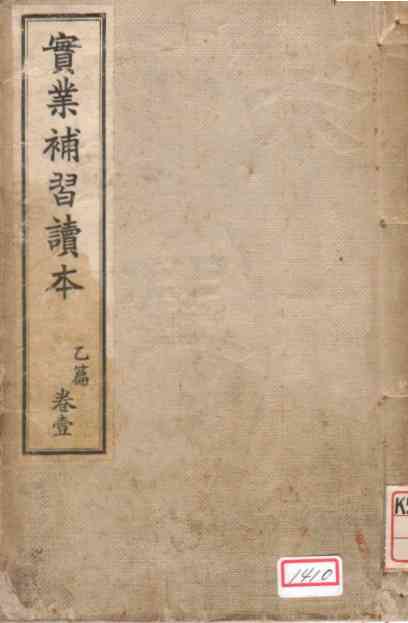 實業補習讀本
乙篇
卷壹
1410